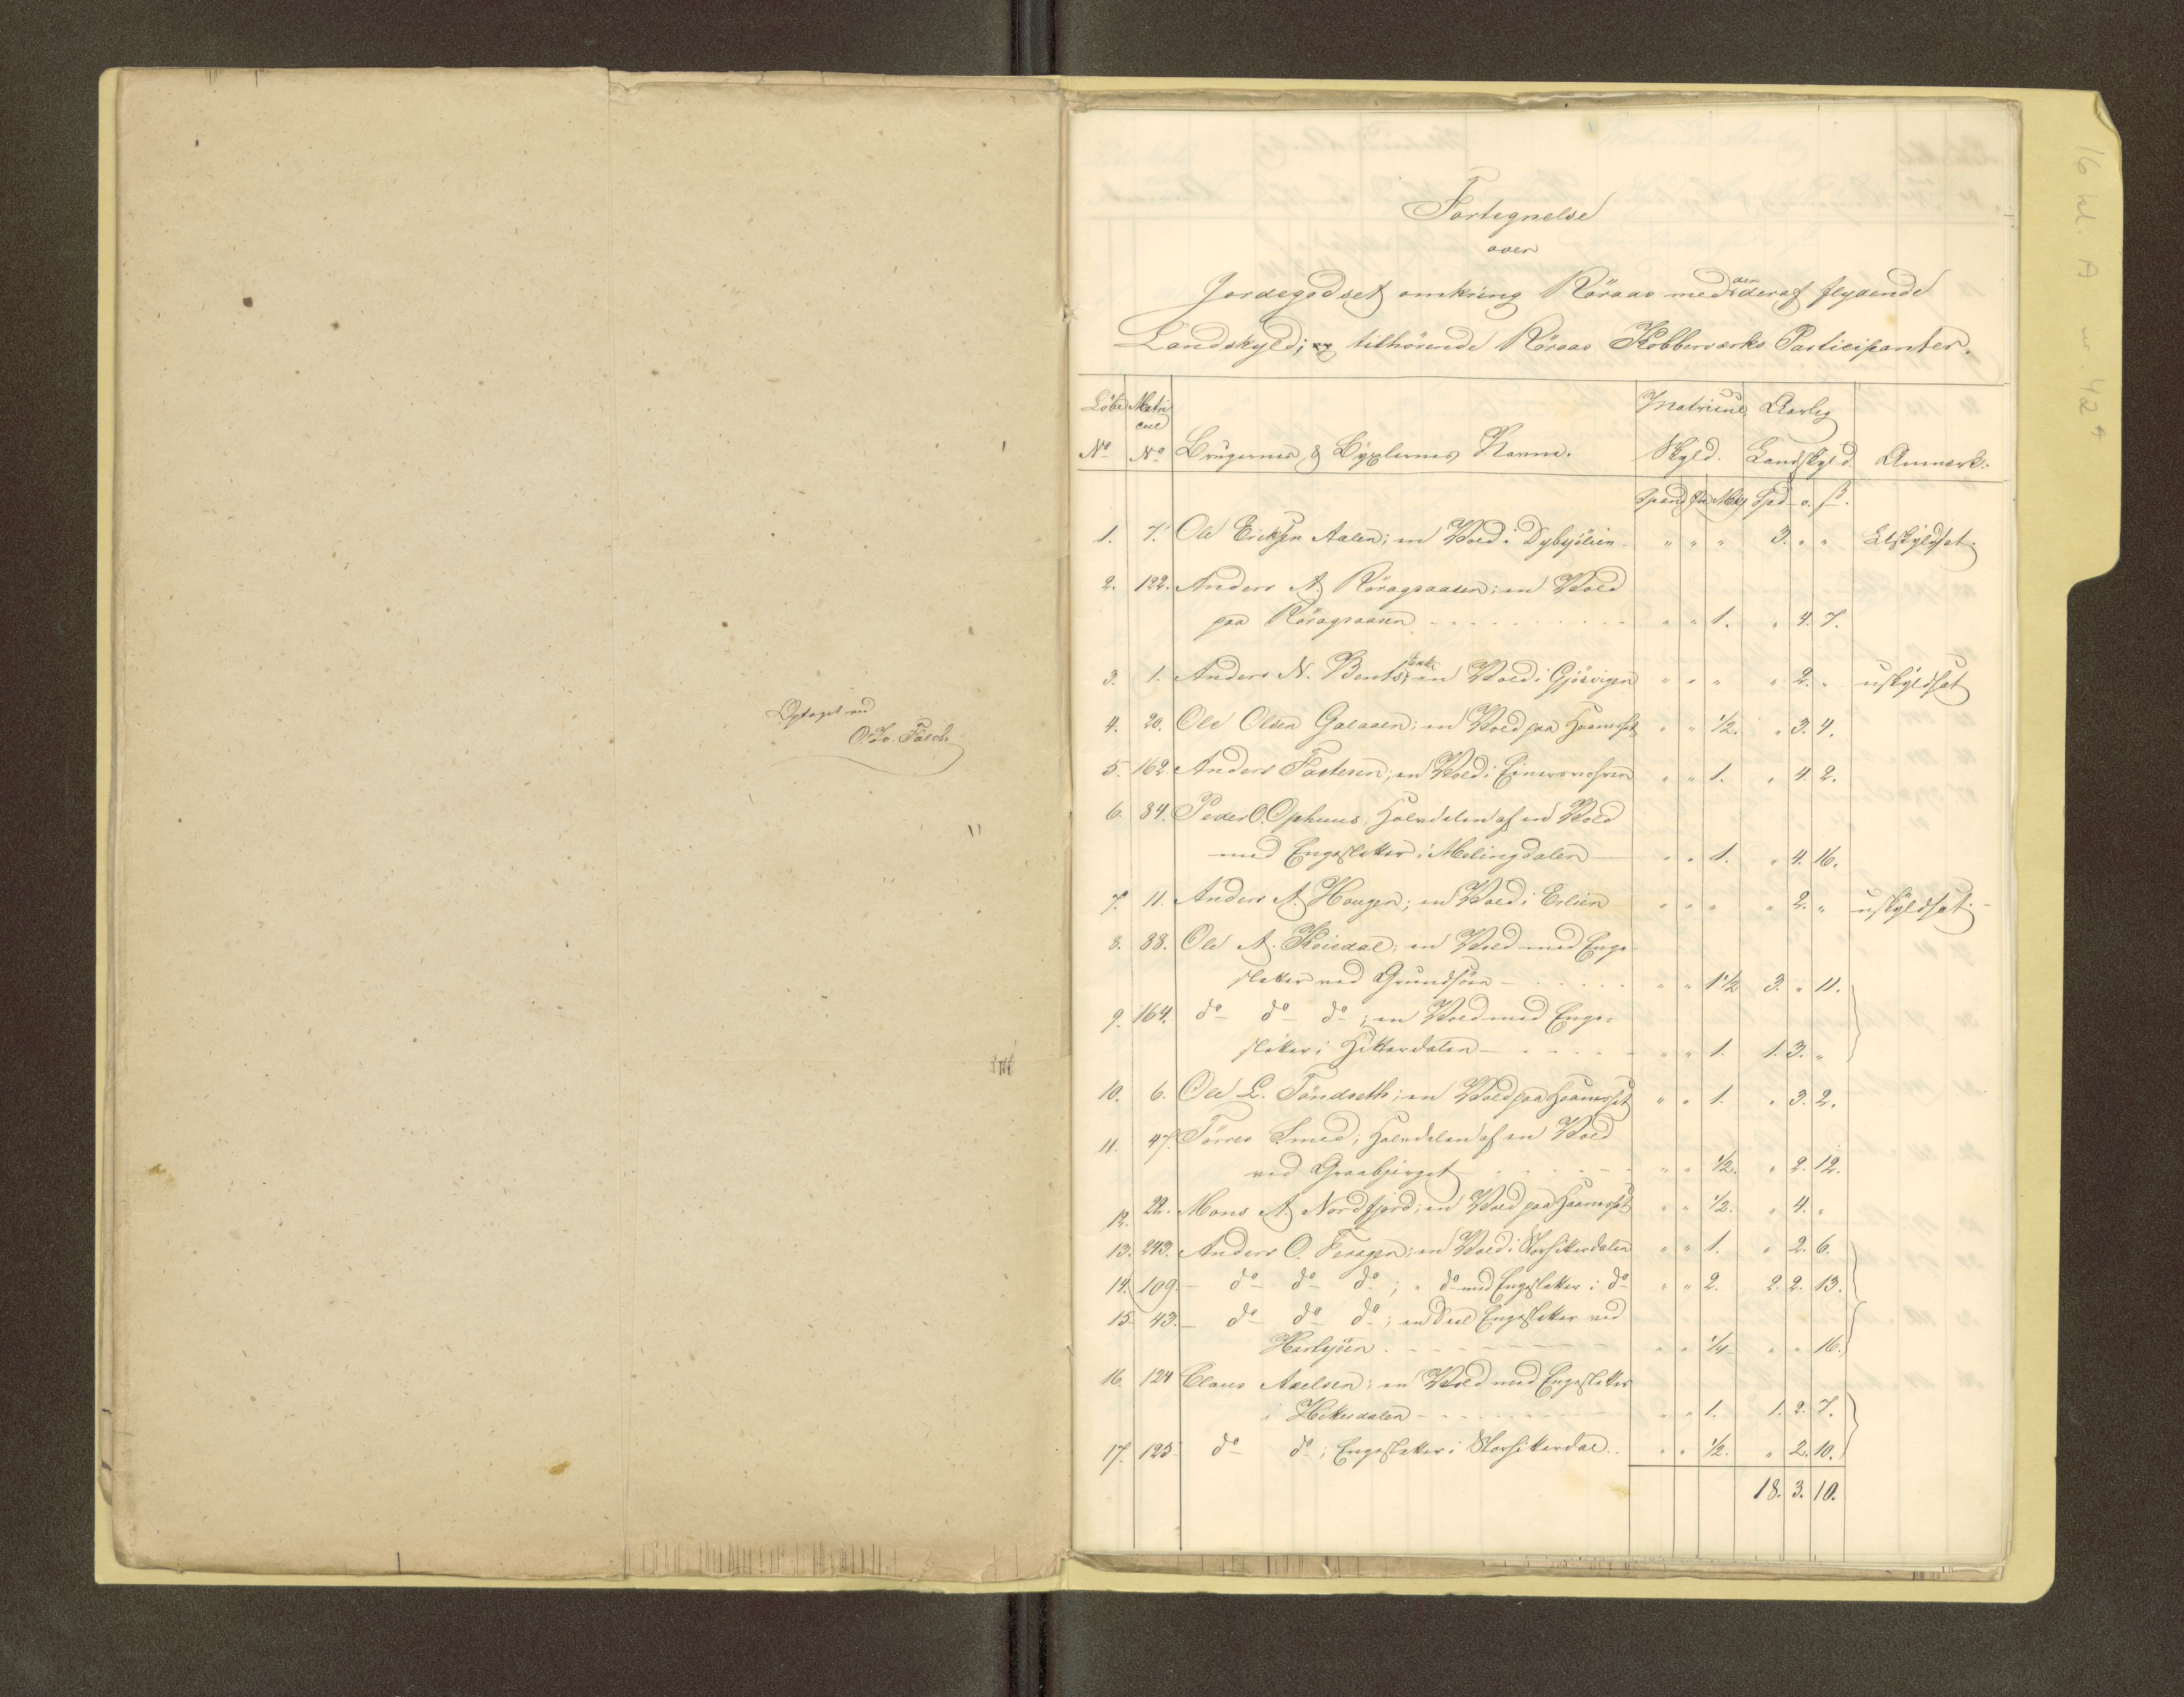 Optaget ved
O. Jo. Falch
16 kl A nr. 42 a
Fortegnelse
over
Jordegodset omkring Röraas med den deraf flydende
Landskyld; tilhörende Röraas Kobberværks Participanter.
Löbe Matri Matricul Aarlig
cul
No No Brugernes & Byxlernes Navne. Skyld. Landskyld. Anmærk.
Spand Öre Mkl Spd o. ß.
1. 7. Ole Eriksen Aalen; en Vold i Dybsjölien " " " 3. " " Uskyldsat.
2. 122. Anders A. Röragsaasen; en Vold
paa Röragsaasen " " 1. " 4. 7.
3. 1. Anders N. Bents; Enke en Vold i Gjösvigen " " " " 2. " uskyldsat
4. 20. Ole Olsen Galaaen; en Vold paa Haanesset " " 1/2. " 3. 4.
5. 162. Anders Fastesen; en Vold i " " 1. " 4. 2.
6. 84. Peder O. Ophuus, Halvdelen af en Vold
med Engesletter i Molingdalen " " 1. " 4. 16.
7. 11. Anders A. Haugen; en Vold i Erlien " " " " 2. " uskyldsat.
8. 88. Ole A. Koiedal; en Vold med Enge-
sletter ved Grundsöen " " 1 1/2 3. " 11.
9. 164. do do do; en Vold med Enge-
sletter i Hitterdalen " " 1. 1. 3. "
10. 6. Ole L. Töndseth; en Vold paa Haanesset " " 1. " 3. 2.
11. 47. Törres Smed; Halvdelen af en Vold
ved Graabjerget " " 1/2. " 2. 12.
12. 22. Mons A. Nordfjord; en Vold paa Haanesset " " 1/2. " 4. "
13. 243. Anders O. Feragen; en Vold i Storhitterdalen " " 1. " 2. 6.
14. 109. do do do; " do med Engesletter i do " " 2. 2. 2. 13.
15. 43. do do do; en Deel Engesletter ved
Harsjöen. " " 1/4 " " 16.
16. 124 Claus Axelsen; en Vold med Engesletter
i Hitterdalen " " 1. 1. 2. 7.
17. 125. do do; Engesletter i Storhitterdal.. " " 1/2. " 2. 10.
18. 3. 10.